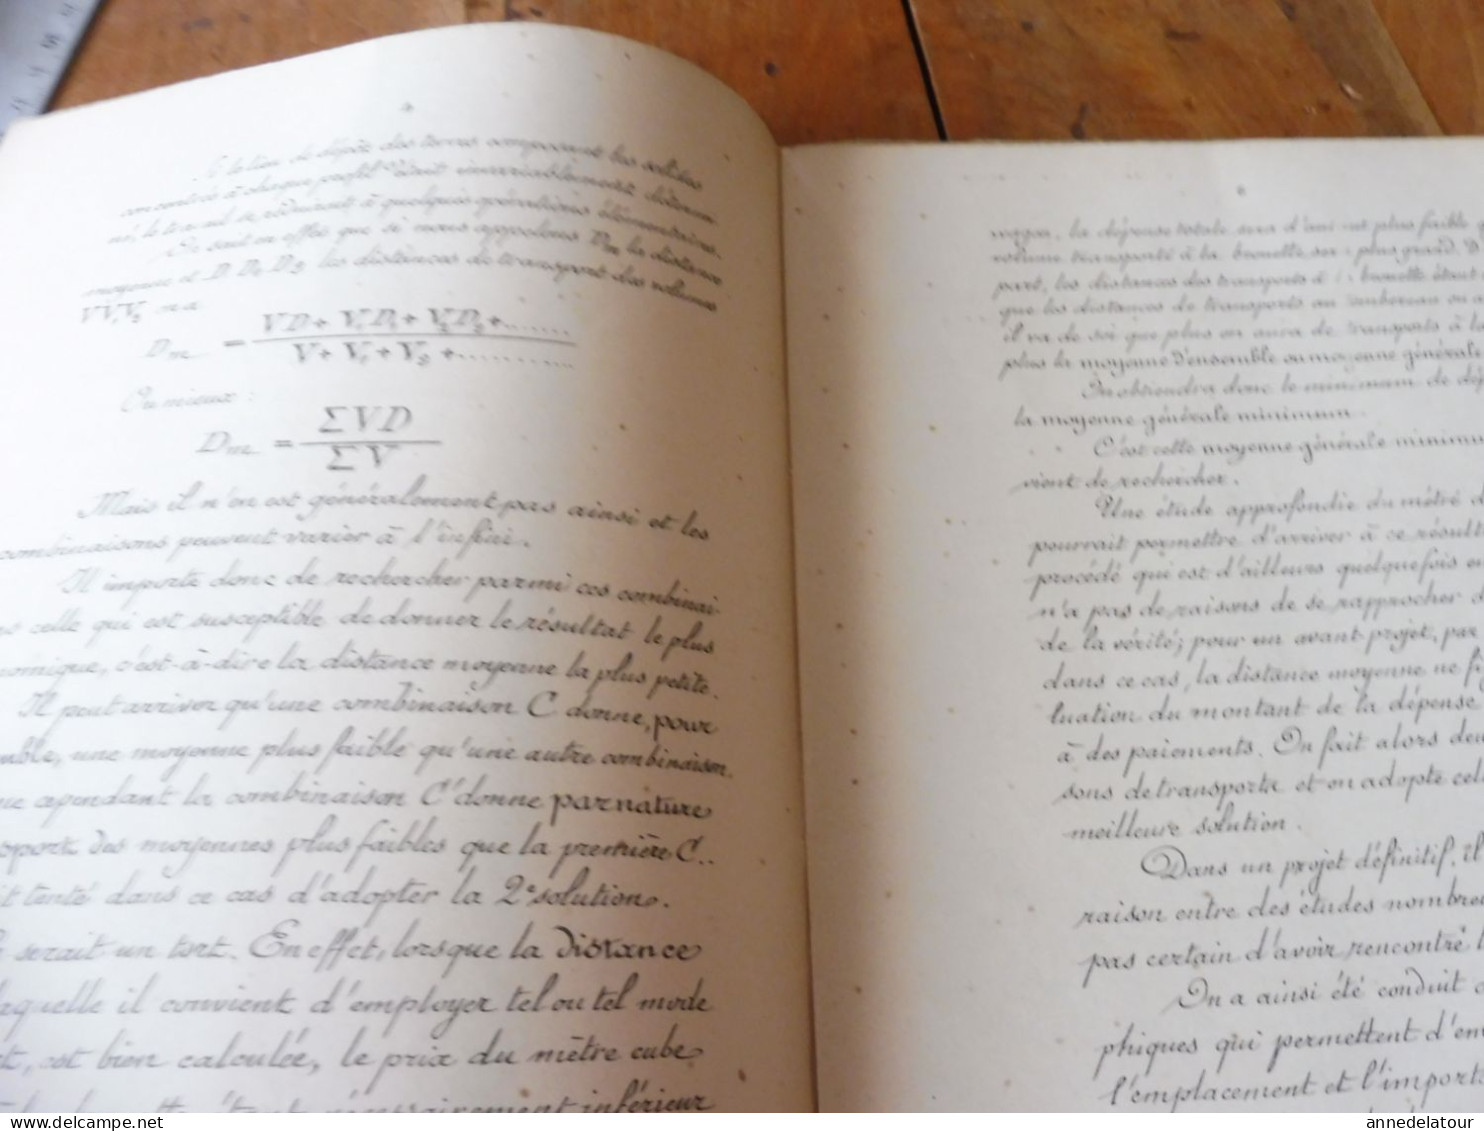 4
Si le lieu de dépôt des terres composant les solides
concentrés à chaque profil était invariablement détermi-
né, le travail se réduirait à quelques opérations élémentaires.
On sait en effet que si nous appelons Dm la distance
moyenne et D D₁ D₂ les distances de transport des volumes
V V₁ V₂ on a
Dm = VD + V₁D₁ + V₂D₂ + ........
V + V₁ + V₂ + ............
Ou mieux :
Dm = ΣVD
ΣV
Mais il n'en est généralement pas ainsi et les
combinaisons peuvent varier à l'infini.
Il importe donc de rechercher parmi ces combinai-
celle qui est susceptible de donner le résultat le plus
nomique, c'est-à-dire la distance moyenne la plus petite.
Il peut arriver qu'une combinaison C donne, pour
mble, une moyenne plus faible qu'une autre combinaison
que cependant la combinaison C' donne par nature
port des moyennes plus faibles que la première C..
it tenté dans ce cas d'adopter la 2e solution.
serait un tort. En effet, lorsque la distance
laquelle il convient d'employer tel ou tel mode
t, est bien calculée, le prix du mètre cube
nécessairement inférieur
wagon, la dépense totale sera d'autant plus faible q
volume transporté à la brouette sera plus grand. D
part, les distances des transports à la brouette étant
que les distances de transports au tombereau ou a
il va de soi que plus on aura de transports à la
plus la moyenne d'ensemble ou moyenne générale
On obtiendra donc le minimum de dép
la moyenne générale minimum.
C'est cette moyenne générale minimum
vient de rechercher.
Une étude approfondie du métré d
pourrait permettre d'arriver à ce résultat
procédé qui est d'ailleurs quelquefois em
n'a pas de raisons de se rapprocher d
de la vérité; pour un avant projet, par
dans ce cas, la distance moyenne ne fi
luation du montant de la dépense
à des paiements. On fait alors deux
sons de transports et on adopte cel
meilleure solution.
Dans un projet définitif, il
raison entre des études nombreu
pas certain d'avoir rencontré l
On a ainsi été conduit à
phiques qui permettent d'em
l'emplacement et l'import
annedelatour